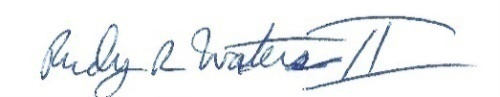 Rudy R Waters II